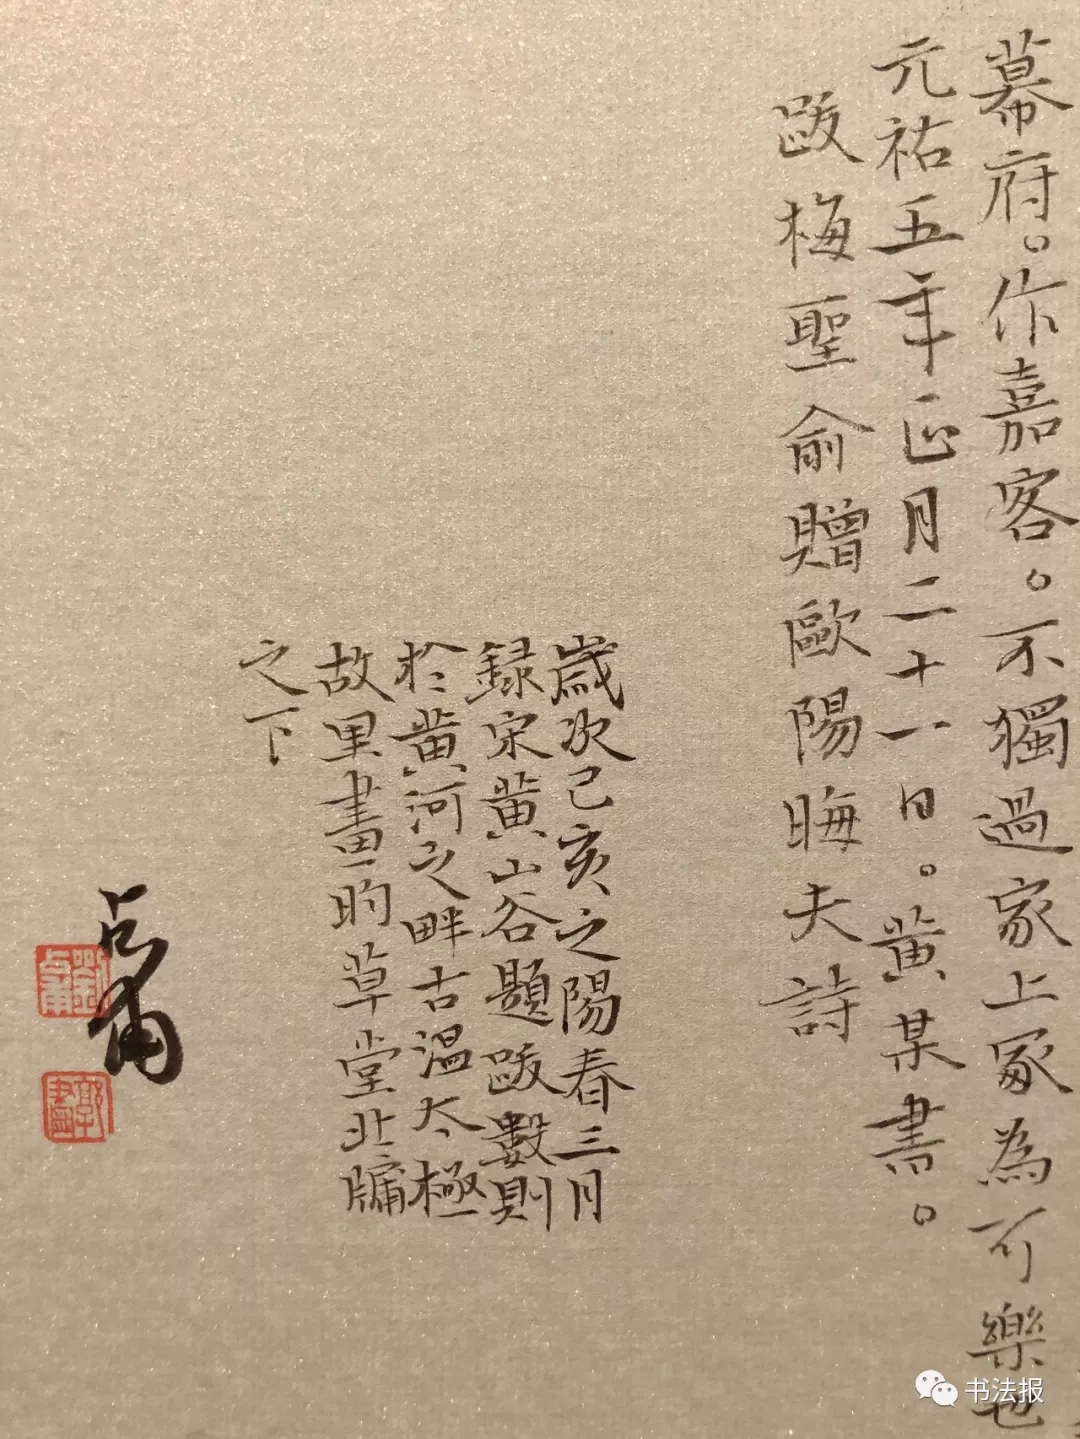 幕府。作嘉客。不獨過家上冢為可樂也
元祐五年正月二十一日。黄某書。
跋梅聖俞贈歐陽晦夫詩
歲次己亥之陽春三月
録宋黄山谷題跋數則
於黄河之畔古温太極
故里畫昀草堂北牖
之下
书法报